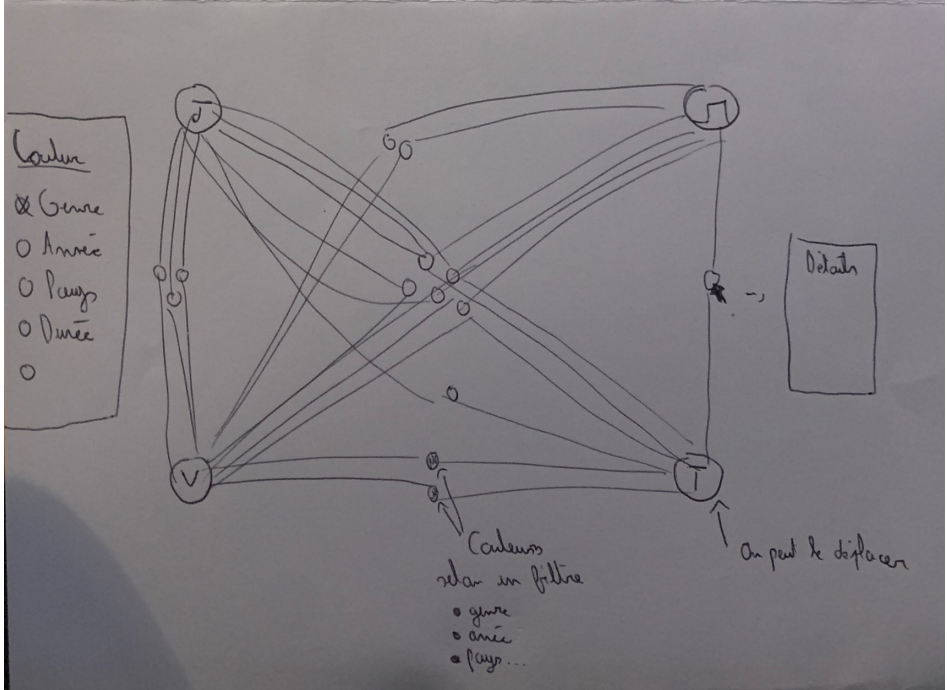 Couleur
Genre
Année
Pays
Durée
J
M
V
T
Détails
Couleurs
selon un filtre
• genre
• anée
• pays...
On peut le déplacer